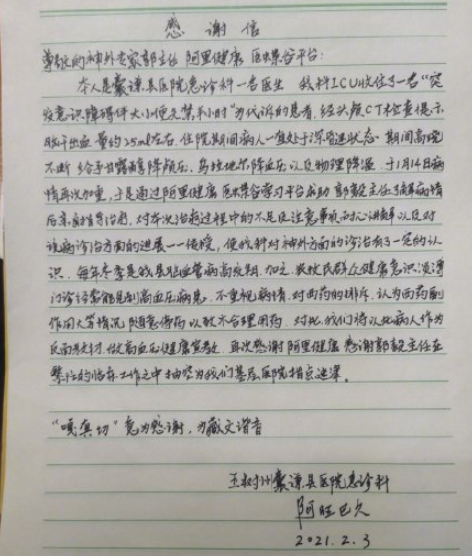 感谢信
尊敬的神外专家郭主任 阿里健康 医蝶谷平台:
本人是囊谦县医院急诊科一名医生 我科ICU收住了一名“突
发意识障碍伴大小便失禁半小时”为代诉的患者,经头颅CT检查提示
脑干出血 量约25ml左右.住院期间病人一直处于深昏迷状态.期间高烧
不断 给予甘露醇降颅压、乌拉地尔降血压以及物理降温.于1月14日病
情再次加重,于是通过阿里健康 医蝶谷学习平台求助 郭毅主任了解病情
后亲自指导治疗,对本次治疗过程中的不足及注意事项耐心讲解以及对
该病诊治方面的进展一一传授,使我科对神外方面的诊治有了一定的认
识.每年冬季是我县脑血管病高发期.加之农牧民群众健康意识淡薄
门诊经常能见到高血压病患.不重视病情.对西药的排斥.认为西药副
作用大等情况 随意停药以致不合理用药.对此我们将以此病人作为
反面教材.做高血压健康宣教.再次感谢阿里健康 感谢郭毅主任在
繁忙的临床工作之中抽空为我们基层医院指点迷津。
“嘎真切”意为感谢,为藏文谐音
玉树州囊谦县医院急诊科
阿旺巴久
2021.2.3